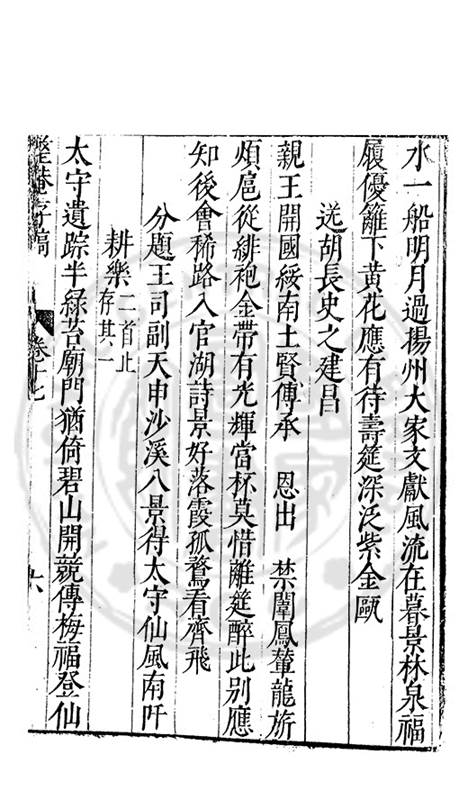 水一船明月過揚州大家文獻風流在暮景林泉福
履優籬下黃花應有待壽筵深泛紫金甌
送胡長史之建昌
親王開國綏南土賢傅承　恩出　禁闈鳳輦龍旂
煩扈從緋袍金帶有光輝當杯莫惜離筵醉此別應
知後會稀路入官湖詩景好落霞孤鶩看齊飛
分題王司副天申沙溪八景得太守仙風南阡
耕樂二首止存其一
太守遺踪半綠苔廟門猶倚碧山開競傳梅福登仙
存稿
卷十七
六